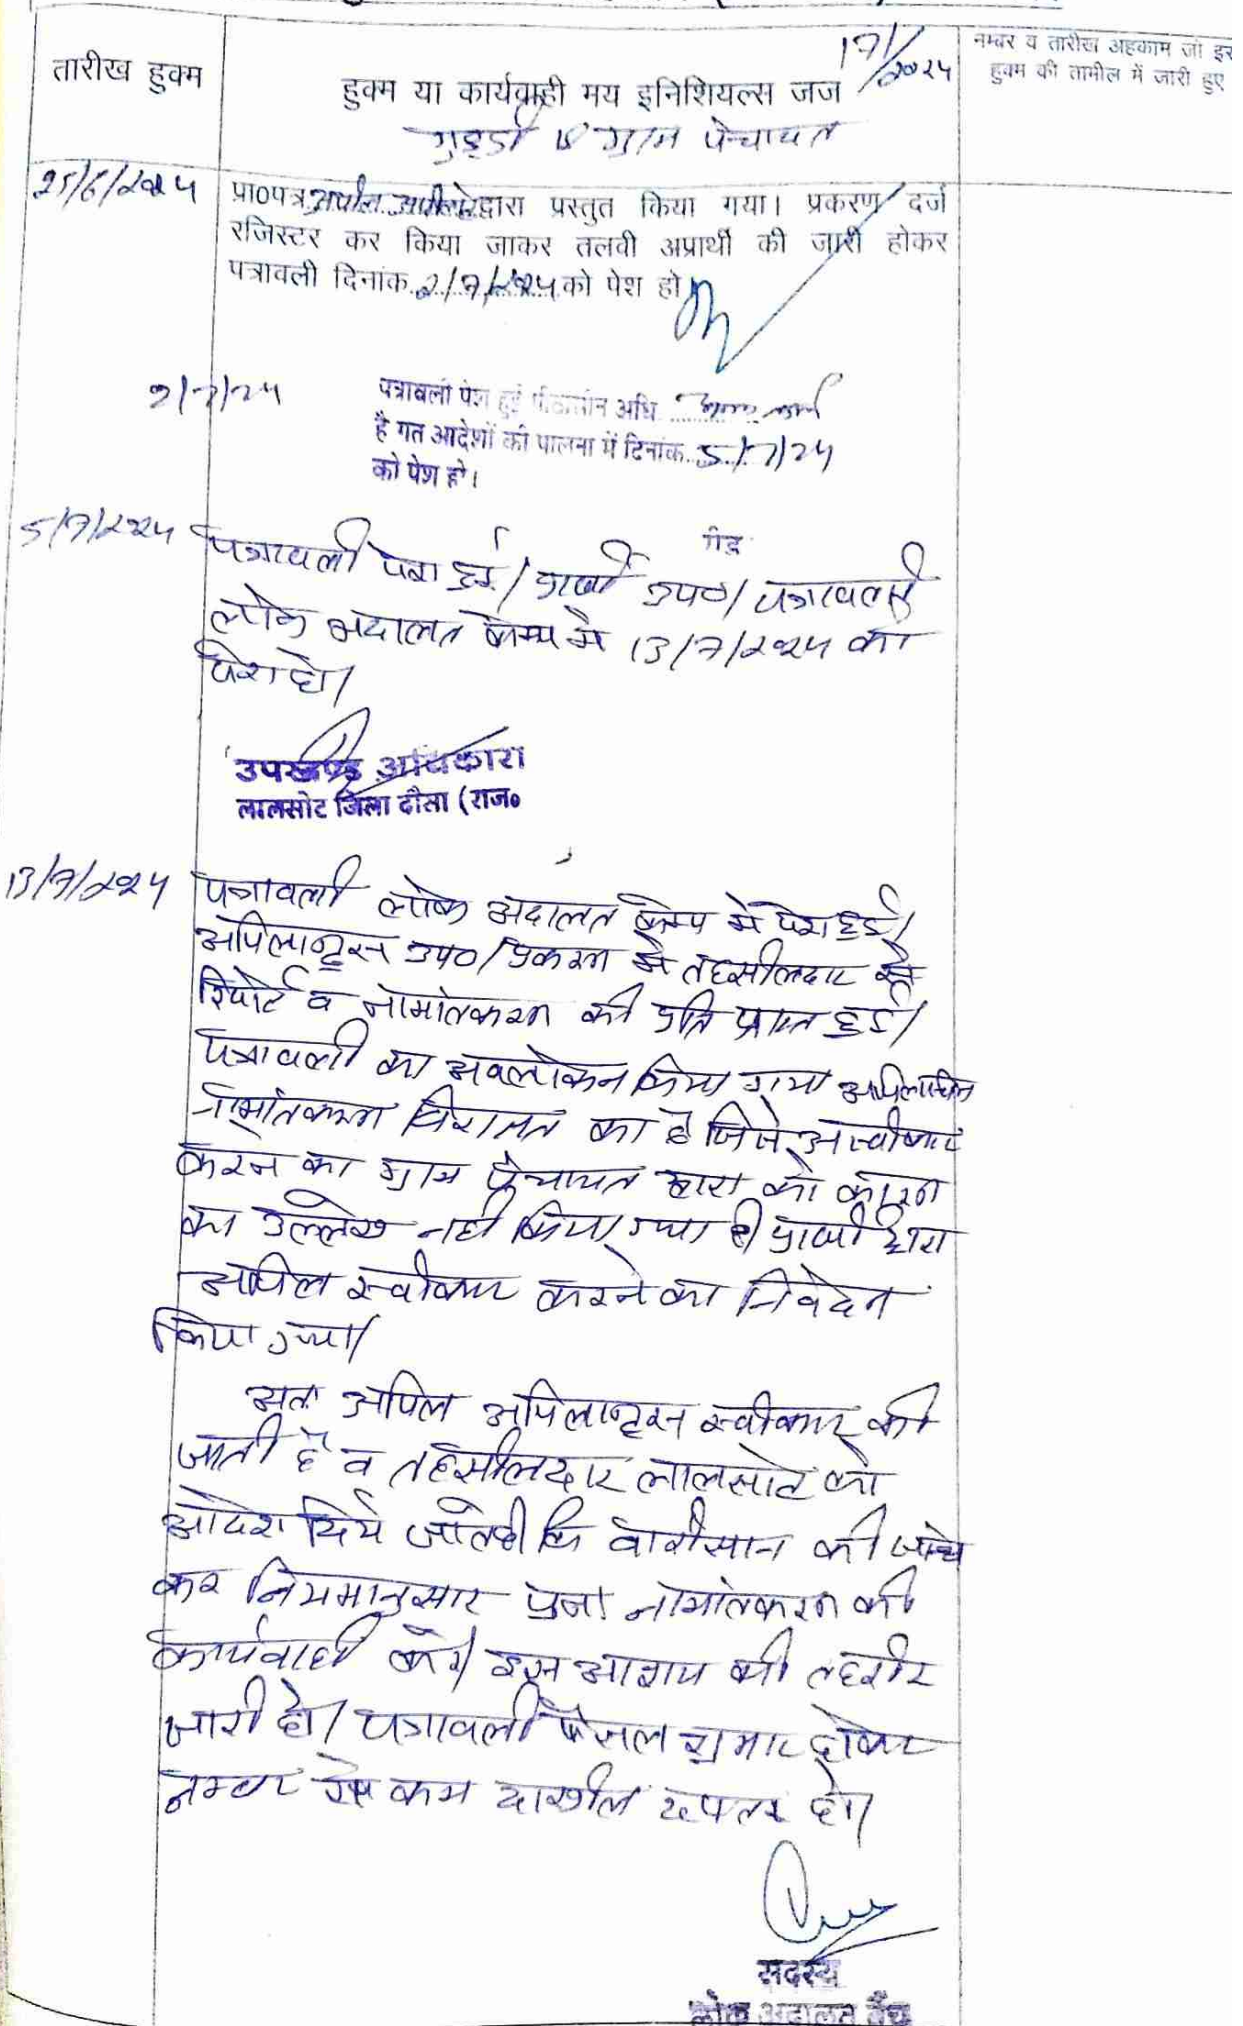 171/2024
तारीख हुक्म
हुक्म या कार्यवाही मय इनिशियल्स जज
नम्बर व तारीख अहकाम जो इस
हुक्म की तामील में जारी हुए
गुड्डी ग्राम पंचायत
25/6/2024
प्रा०पत्र अपील द्वारा प्रस्तुत किया गया। प्रकरण दर्ज
रजिस्टर कर किया जाकर तलवी अप्रार्थी की जारी होकर
पत्रावली दिनांक 2/7/2024 को पेश हो
2/7/24
पत्रावली पेश हुई पीठासीन अधि
है गत आदेशों की पालना में दिनांक 5/7/24
को पेश हो।
5/7/2024
पत्रावली पेश हुई/ प्रार्थी उप०/ पत्रावली
लोक अदालत केम्प मे 13/7/2024 को
पेश हो/
उपखण्ड अधिकारी
लालसोट जिला दौसा (राज०
13/7/2024
पत्रावली लोक अदालत केम्प मे पेश हुई/
अपिलान्ट्स उप०/ प्रकरण मे तहसीलदार से
रिपोर्ट व नामांतकरण की प्रति प्राप्त हुई/
पत्रावली का अवलोकन किया गया अपिलाधीन
नामांतकरण विरासत का है जिसे अस्वीकार
करने का ग्राम पंचायत द्वारा को कारण
का उल्लेख नही किया गया है/ प्रार्थी द्वारा
अपिल स्वीकार करने का निवेदन
किया गया/
अतः अपिल अपिलान्ट्स स्वीकार की
जाती है व तहसीलदार लालसोट को
आदेश दिये जाते है कि वारीसान की जांच
कर नियमानुसार पुनः नामांतकरण की
कार्यवाही करे/ इस आशय की तहरीर
जारी हो/ पत्रावली फैसल शुमार होकर
नम्बर से कम दाखील दफ्तर हो/
सदस्य
लोक अदालत बैंच